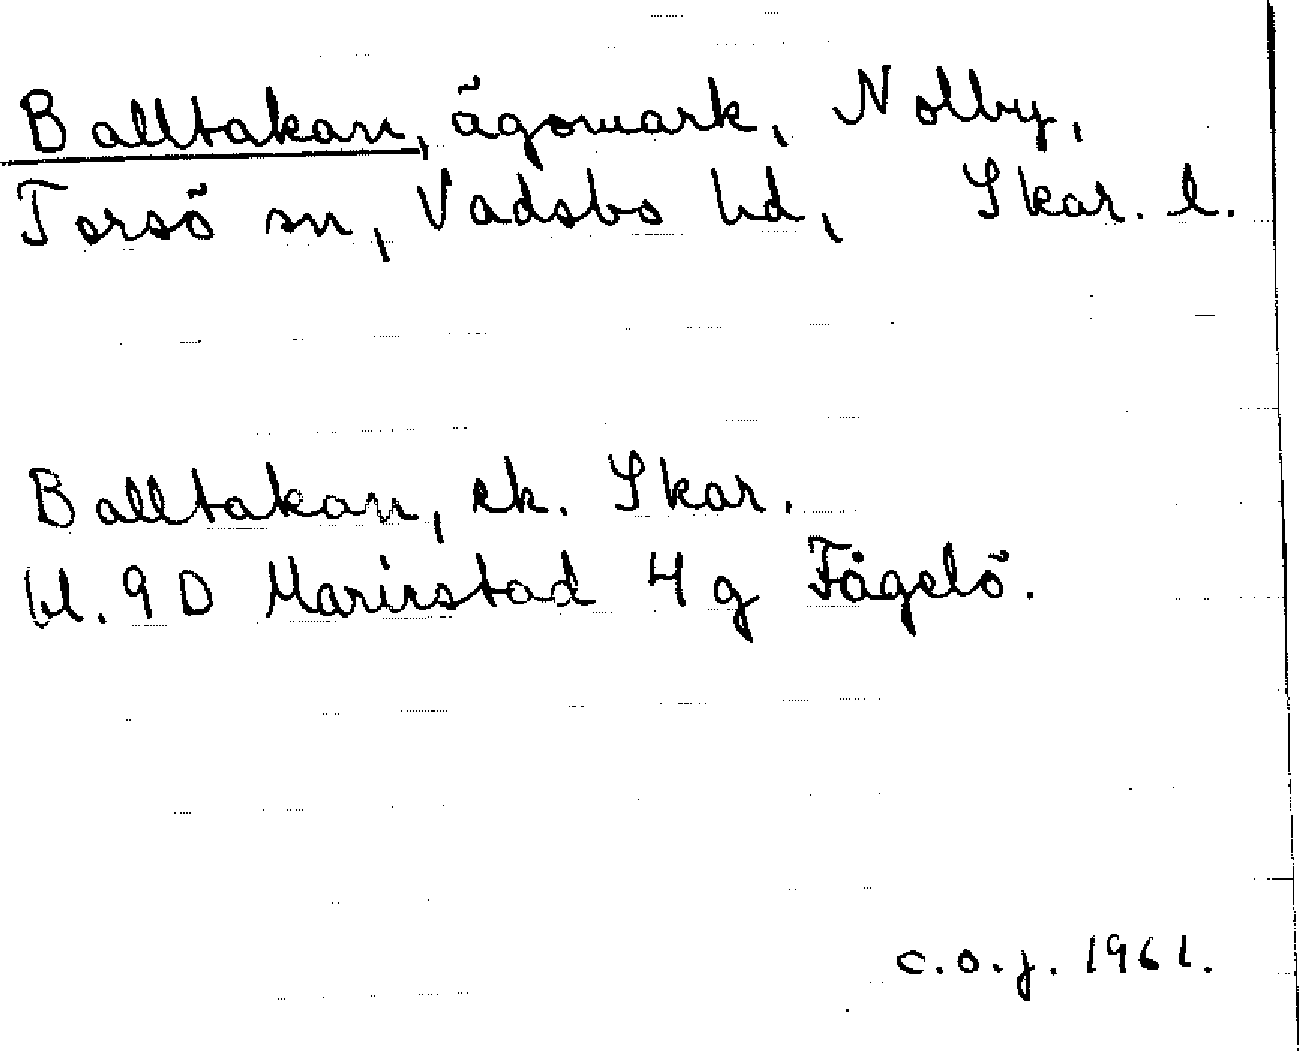 Balltakan, ägomark, Nolby,
Torsö sn, Vadsbo hd, Skar. l.
Balltakan, ek. Skar.
bl. 9 D Mariestad 4 g Fågelö.
c.o.j. 1961.